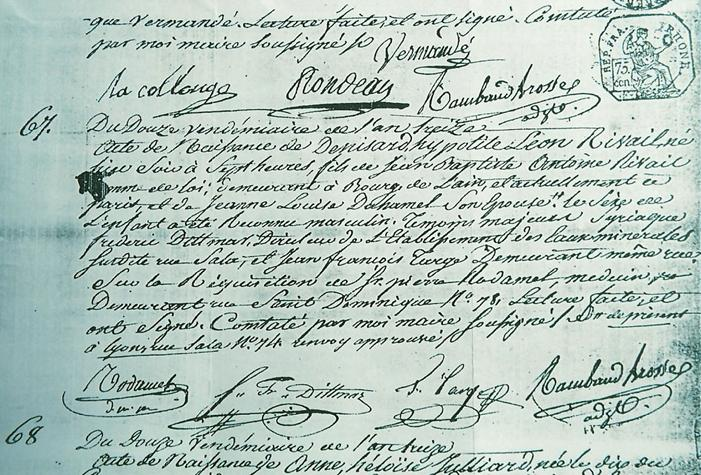 que Vermandé. Lecture faite, et ont signé. Constaté
par moi maire soussigné
Vermandé
la collonge Rondeau Rambaud Brosse
adjt.
REP. FRA. RHONE
75
cen.
67. Du Douze Vendémiaire de l'an treize
Acte de Naissance de Denisard, hypolite Léon Rivail, né
hier soir à Sept heures, fils de Jean Baptiste Antoine Rivail
homme de loi, demeurant à Bourg de l'ain, et actuellement à
paris, et de Jeanne Louise Duhamel Son épouse, le Sexe de
L'enfant a été Reconnu masculin. Témoins majeurs Syriaque
fréderic Dittmar, Directeur de l'Etablissement des Eaux minérales
Susdite rue Sala, et Jean François Targe Demeurant même rue
Sur la Réquisition de Sr. pierre Rodamel, medecin
Demeurant rue Saint Dominique No. 78, Lecture faite, et
ont signé. Constaté par moi maire soussigné
à Lyon, rue Sala No. 74 renvoy approuvé
Rodamel Dittmar Targe Rambaud Brosse
adjt.
68 Du Douze Vendémiaire de l'an treize
Acte de Naissance de Anne, héloïse Julliard, née le dix du